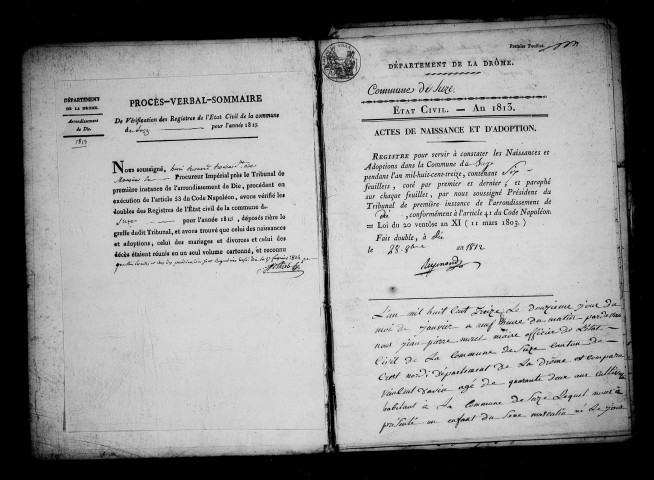 DÉPARTEMENT
DE LA DROME.
Arrondissement
de Die.
1813
PROCÈS-VERBAL-SOMMAIRE
De Vérification des Registres de l'État Civil de la commune
de Suze pour l'année 1813.
Nous soussigné,
Procureur Impérial près le Tribunal de
première instance de l'arrondissement de Die, procédant en
exécution de l'article 53 du Code Napoléon, avons vérifié les
doubles des Registres de l'État civil de la commune de
Suze pour l'année 1813, déposés rière le
greffe dudit Tribunal, et avons trouvé que celui des naissances
et adoptions, celui des mariages et divorces et celui des
décès étaient réunis en un seul volume cartonné, et reconnu
Premier Feuillet.
DÉPARTEMENT DE LA DRÔME.
Commune de Suze
ÉTAT CIVIL. — AN 1813.
ACTES DE NAISSANCE ET D'ADOPTION.
REGISTRE pour servir à constater les Naissances et
Adoptions dans la Commune de Suze
pendant l'an mil-huit-cent-treize, contenant Six
feuillets, coté par premier et dernier, et paraphé
sur chaque feuillet, par nous soussigné Président du
Tribunal de première instance de l'arrondissement de
Die, conformément à l'article 41 du Code Napoléon.
= Loi du 20 ventôse an XI (11 mars 1803.)
Fait double, à Die
le 28 en 1812
L'an mil huit Cent Treize Le douzieme jour du
moi de janvier a neuf heure du matin par devant
nous jean pierre maire officier de L'état
Civil de La Commune de Suze Canton de
Crest nord, département de La Drôme et Comparu
agé de quarante deux ans Cultiva
habitant à La Commune de Suze Lequel nous à
présenté un enfant du Sexe masculin né Le jour